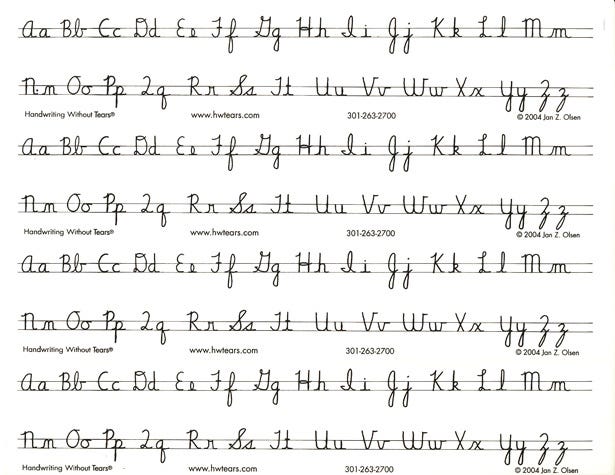 Aa Bb Cc Dd Ee Ff Gg Hh Ii Jj Kk Ll Mm
Nn Oo Pp Qq Rr Ss Tt Uu Vv Ww Xx Yy Zz
Handwriting Without Tears® www.hwtears.com 301-263-2700 © 2004 Jan Z. Olsen
Aa Bb Cc Dd Ee Ff Gg Hh Ii Jj Kk Ll Mm
Nn Oo Pp Qq Rr Ss Tt Uu Vv Ww Xx Yy Zz
Handwriting Without Tears® www.hwtears.com 301-263-2700 © 2004 Jan Z. Olsen
Aa Bb Cc Dd Ee Ff Gg Hh Ii Jj Kk Ll Mm
Nn Oo Pp Qq Rr Ss Tt Uu Vv Ww Xx Yy Zz
Handwriting Without Tears® www.hwtears.com 301-263-2700 © 2004 Jan Z. Olsen
Aa Bb Cc Dd Ee Ff Gg Hh Ii Jj Kk Ll Mm
Nn Oo Pp Qq Rr Ss Tt Uu Vv Ww Xx Yy Zz
Handwriting Without Tears® www.hwtears.com 301-263-2700 © 2004 Jan Z. Olsen